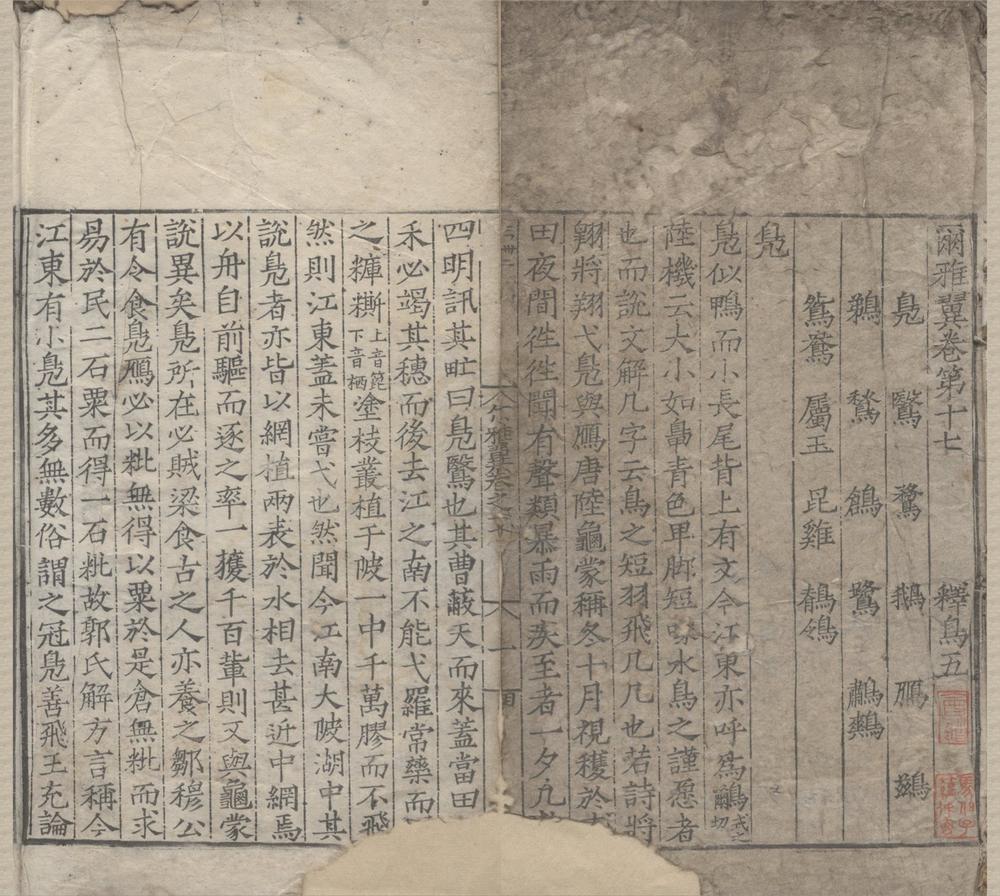 爾雅翼卷第十七 釋鳥五
鳧 鷖 鶩 鵝 鴈 鷁
鵜 鶖 鴿 鷺 鸕鷀
鴛鴦 屬玉 昆雞 鶺鴒
鳧
鳧似鴨而小長尾背上有文今江東亦呼爲鸍弋之切
陸機云大小如鳧青色卑脚短喙水鳥之謹愿者
也而說文解几字云鳥之短羽飛几几也若詩將
翱將翔弋鳧與鴈唐陸龜蒙稱冬十月視穫於
田夜間徃徃聞有聲類暴雨而疾至者一夕九
四明訊其甿曰鳧鷖也其曹蔽天而來蓋當田
禾必竭其穗而後去江之南不能弋羅常藥而
之糠𥻦上音箆下音栖塗枝叢植于陂一中千萬膠而不飛
然則江東蓋未嘗弋也然聞今江南大陂湖中其
說鳧者亦皆以網植兩表於水相去甚近中網焉
以舟自前驅而逐之率一獲千百輩則又與龜蒙
說異矣鳧所在必賊梁食古之人亦養之鄒穆公
有令食鳧鴈必以粃無得以粟於是倉無粃而求
易於民二石粟而得一石粃故郭氏解方言稱今
江東有小鳧其多無數俗謂之冠鳧善飛王充論